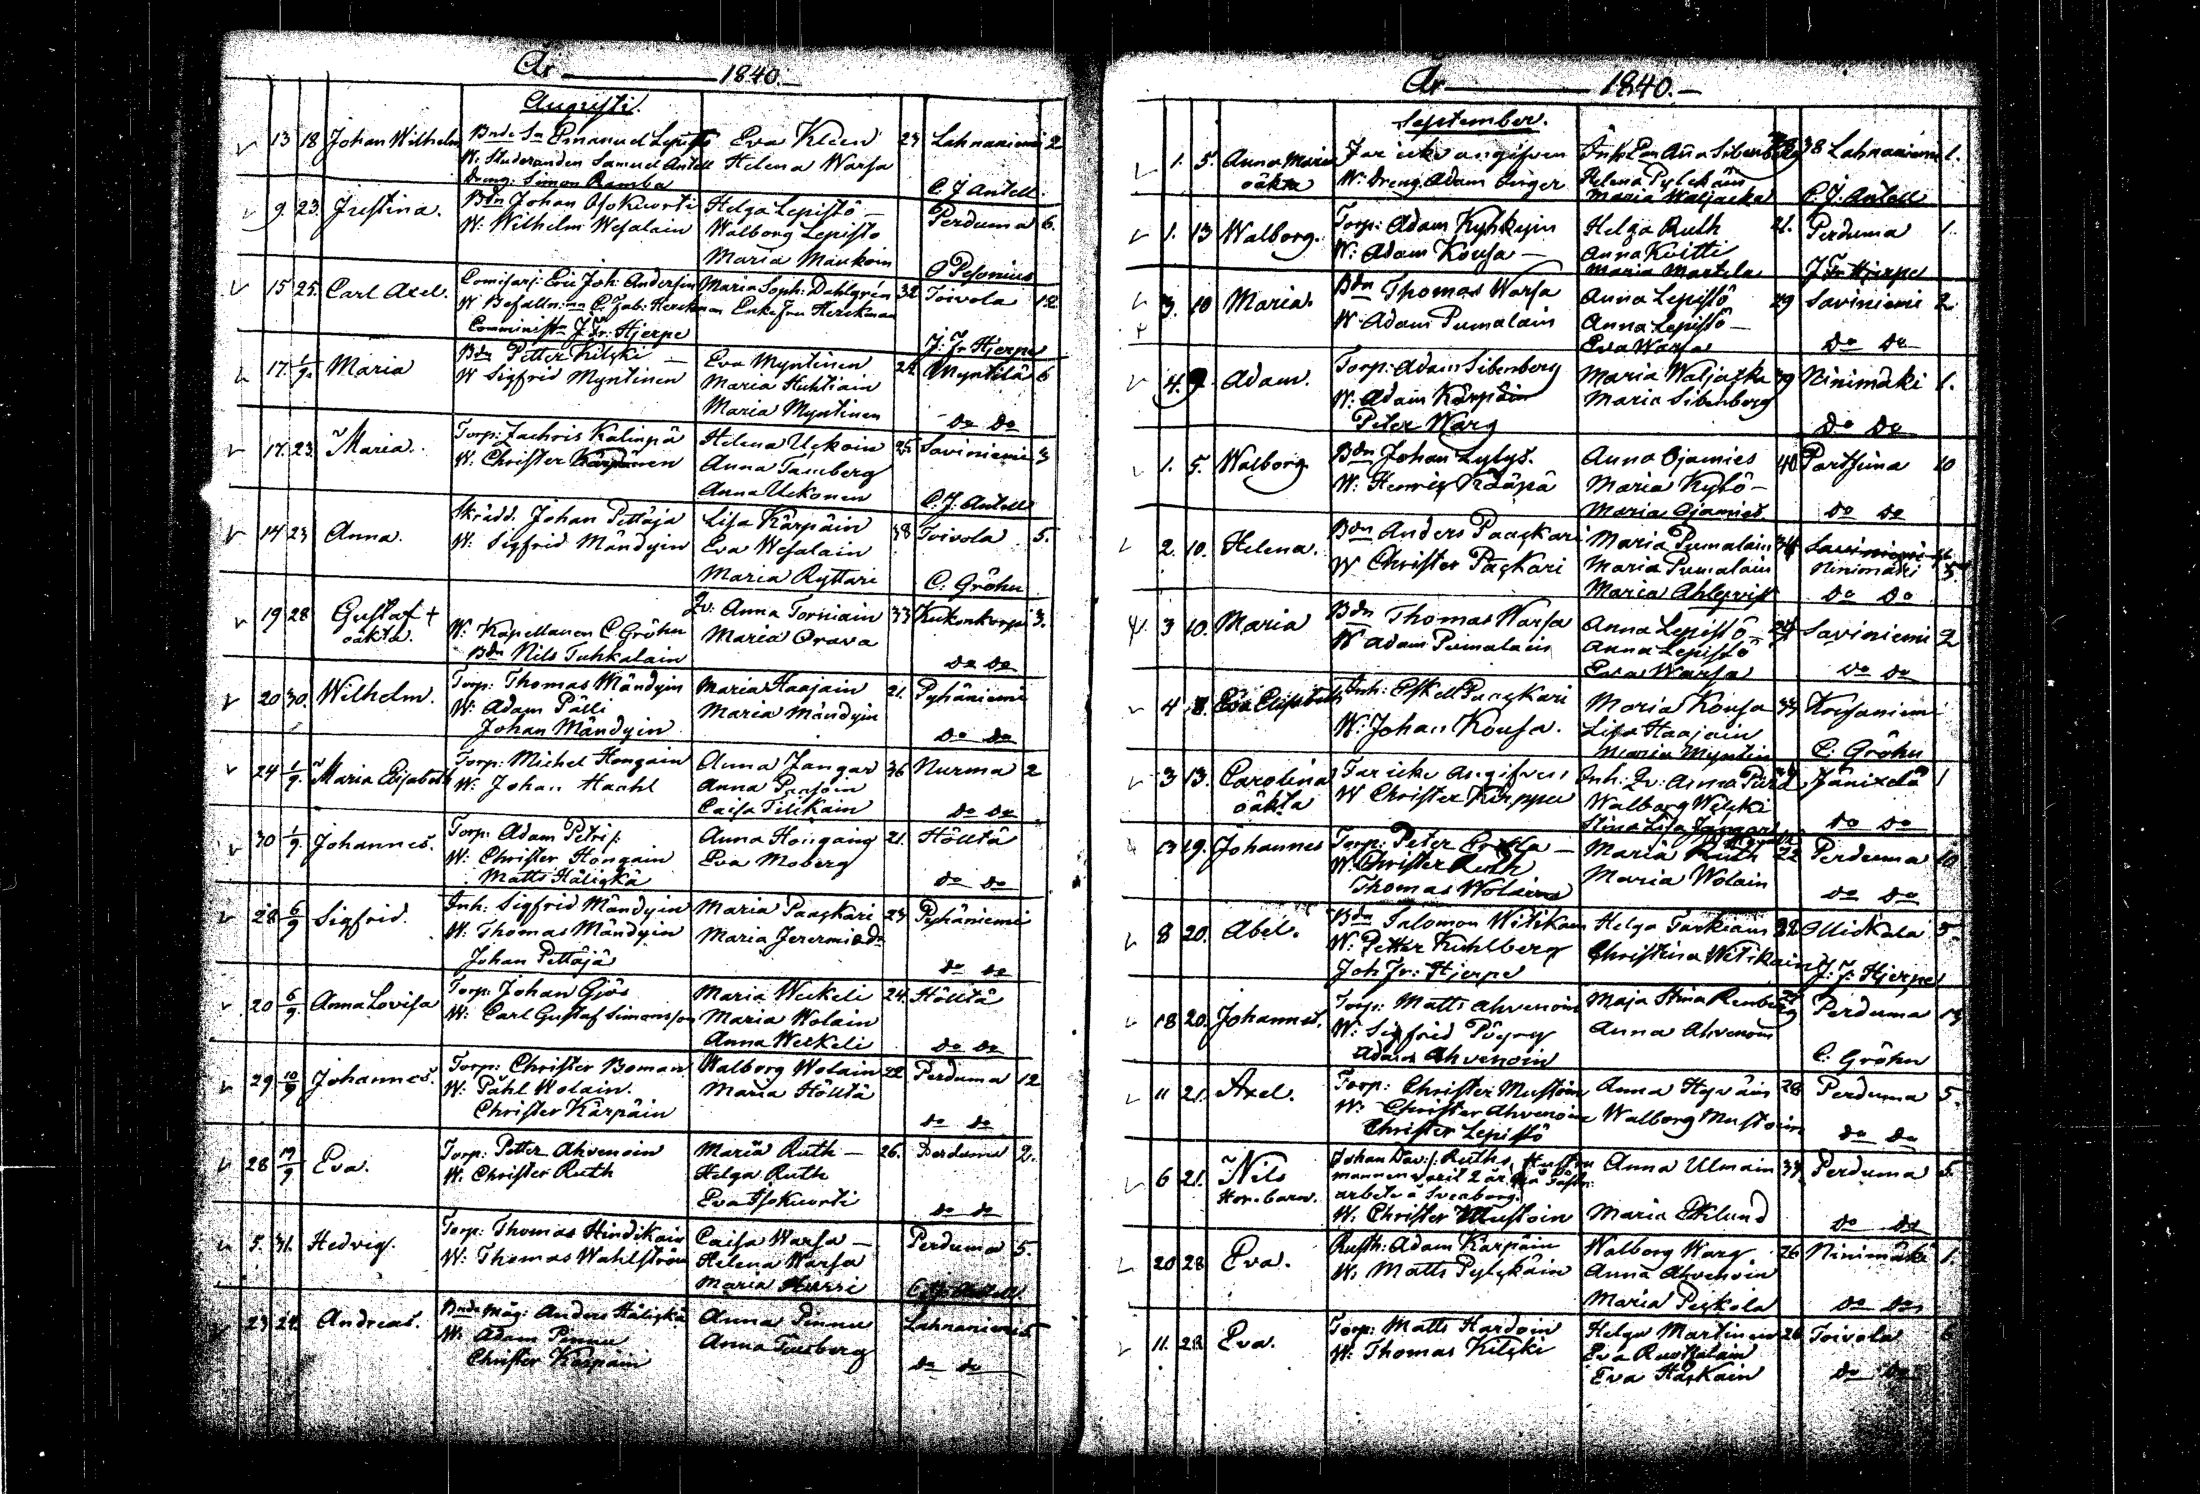 År 1840.
Augusti.
13 18 Johan Wilhelm Bnde Sn Emanuel Lepistö Eva Kleen 23 Lahnaniemi 2
W: Studeranden Samuel Antell Helena Warsa
Dräng: Simon Ramba C. J. Antell
9. 23. Justina. Bdn Johan Helga Lepistö Perduma 6.
W: Wilhelm Wesalain Walborg Lepistö
Maria Maukoin O Pesonius
15 25. Carl Axel. Eric Joh: Andersin Maria Soph: Dahlgren 32 Toivola 12
W C. Jab: Herckman Enkefru Herckman
J Fr: Hjerpe J: Fr Hjerpe
17. 1/9. Maria Bdn Petter Kilski Eva Myntinen 24 Myntilä 6
W Sigfrid Myntinen Maria Huhtiain
Maria Myntinen Do Do
17. 23. Maria. Torp: Zachris Kalinpä Helena Uckoin 25 Saviniemi 3
W. Christer Kärpänen Anna Tamberg
Anna Uckonen C. J. Antell
14 23 Anna. Skrädd. Johan Pettäjä Lisa Kärpäin 38 Toivola 5.
W: Sigfrid Mändyin Eva Wesalain
Maria Ryttari C: Gröhn
19 28 Gustaf + Qv: Anna Torniain 33 Kukonkorpi 3.
oäkta. W: Kapellanen C Gröhn Maria Orava
Bdn Nils Tuhkalain Do Do
20 30. Wilhelm. Torp: Thomas Mändyin Maria Haajain 21. Pyhäniemi
W: Adam Pälli Maria Mändyin
Johan Mändyin Do Do
24 1/9. Maria Elisabeth Torp: Michel Hongain Anna Zangar 36 Nurma 2
W: Johan Haahl Anna
Caisa Tilikain Do Do
30 1/9. Johannes. Torp: Adam Petri Anna Hongain 21. Höltä
W: Christer Hongain Eva Moberg
Matts Häliskä Do Do
28 6/9 Sigfrid. Inh: Sigfrid Mändyin Maria Paaskari 23 Pyhäniemi
W: Thomas Mändyin Maria
Johan Pettäjä Do Do
20 6/9 Anna Lovisa Torp: Johan Gjös Maria Weckeli 24. Höltä
W: Carl Gustaf Simonsson Maria Wolain
Anna Weckeli Do Do
29 10/9 Johannes. Torp: Christer Boman Walborg Wolain 22 Perduma 12
W: Påhl Wolain. Maria Höltä
Christer Kärpäin Do Do
28 19/9 Eva. Torp: Petter Ahvenoin Maria Ruth 26. Perduma 2.
W: Christer Ruth Helga Ruth
Eva Do Do
5. 31. Hedvig. Torp: Thomas Hindikain Caisa Warsa Perduma 5.
W: Thomas Wahlström Helena Warsa
Maria Hurri
23 24. Andreas. Bnde Måg: Anders Häliskä Anna Pinnu Lahnaniemi 5
W: Adam Pinnu Anna Tamberg
Christer Kärpäin Do Do
År 1840.
September.
1. 5. Anna Maria Far icke angifven Anna Sibenberg 38 Lahnaniemi 1.
oäkta W: Dreng. Adam Unger Helena Pylckäin
Maria Waljacka C. J. Antell
1. 13 Walborg. Torp: Adam Kyhkyin Helga Ruth 21. Perduma 1.
W: Adam Kousa Anna Kvitti
Maria Martila J Fr Hjerpe
3. 10 Maria. Bdn Thomas Warsa Anna Lepistö 29 Saviniemi 2
W Adam Pumalain Anna Lepistö
Eva Warsa Do Do
4. 7. Adam. Torp: Adam Sibenberg Maria Waljacka 39 Ninimäki 1.
W: Adam Kärpäin Maria Sibenberg
Peter Warg Do Do
1. 5. Walborg. Bdn Johan Lylys. Anna Ojamies 40 Partsima 10
W: Henric Kääpä Maria Kylö
Maria Ojamies Do Do
2. 10. Helena. Bdn Anders Paaskari Maria Pumalain 34
W Christer Paskari Maria Pumalain Ninimäki 5
Maria Ahlqvist Do Do
3 10. Maria Bdn Thomas Warsa Anna Lepistö 29 Saviniemi 2
W Adam Pumalain Anna Lepistö
Eva Warsa Do Do
4 8. Eva Elisabeth Inh: Eskell Paaskari Maria Kousa 33 Korpaniemi
W: Johan Kousa. Lisa Haajain
Maria Myntin C: Gröhn
3 13. Carolina Far icke angifven Inh: Qv: Anna Jänixelä 1
oäkta W Christer Kärppä Walborg Wilski
Stina Lisa Zangar Do Do
13 19. Johannes Torp: Peter Maria 22 Perduma 10
W: Christer Ruth Maria Wolain
Thomas Wolain Do Do
8 20. Abel. Bdn Salomon Witikain Helga Tarkiain 32 Ollickala 5.
W: Petter Kuhlberg Christina Witikain
Joh Fr: Hjerpe J: F: Hjerpe
18 20. Johannes. Torp: Matts Ahvenoin Maja Stina Renberg Perduma 13
W: Sigfrid Pöyry Anna Ahvenoin
Adam Ahvenoin C: Gröhn
11 21. Axel. Torp: Christer Mustoin Anna Hyväin 28 Perduma 5.
W: Christer Ahvenoin Walborg Mustoin
Christer Lepistö Do Do
6 21. Nils Johan Dav: Ruths Hustru Anna Ulmain 33 Perduma 5.
Hor. barn. mannen varit 2 år på fästn:
arbete å Sveaborg.
W: Christer Mustoin Maria Eklund Do Do
20 28 Eva. Rusth: Adam Kärpäin Walborg Warg 26 Ninimäki 1.
W: Matts Pylckäin Anna Ahvenoin
Maria Peskola Do Do
11. 28 Eva. Torp: Matts Hardoin Helga Martinen 26 Toivola 6
W: Thomas Kilski Eva
Eva Haskain Do Do